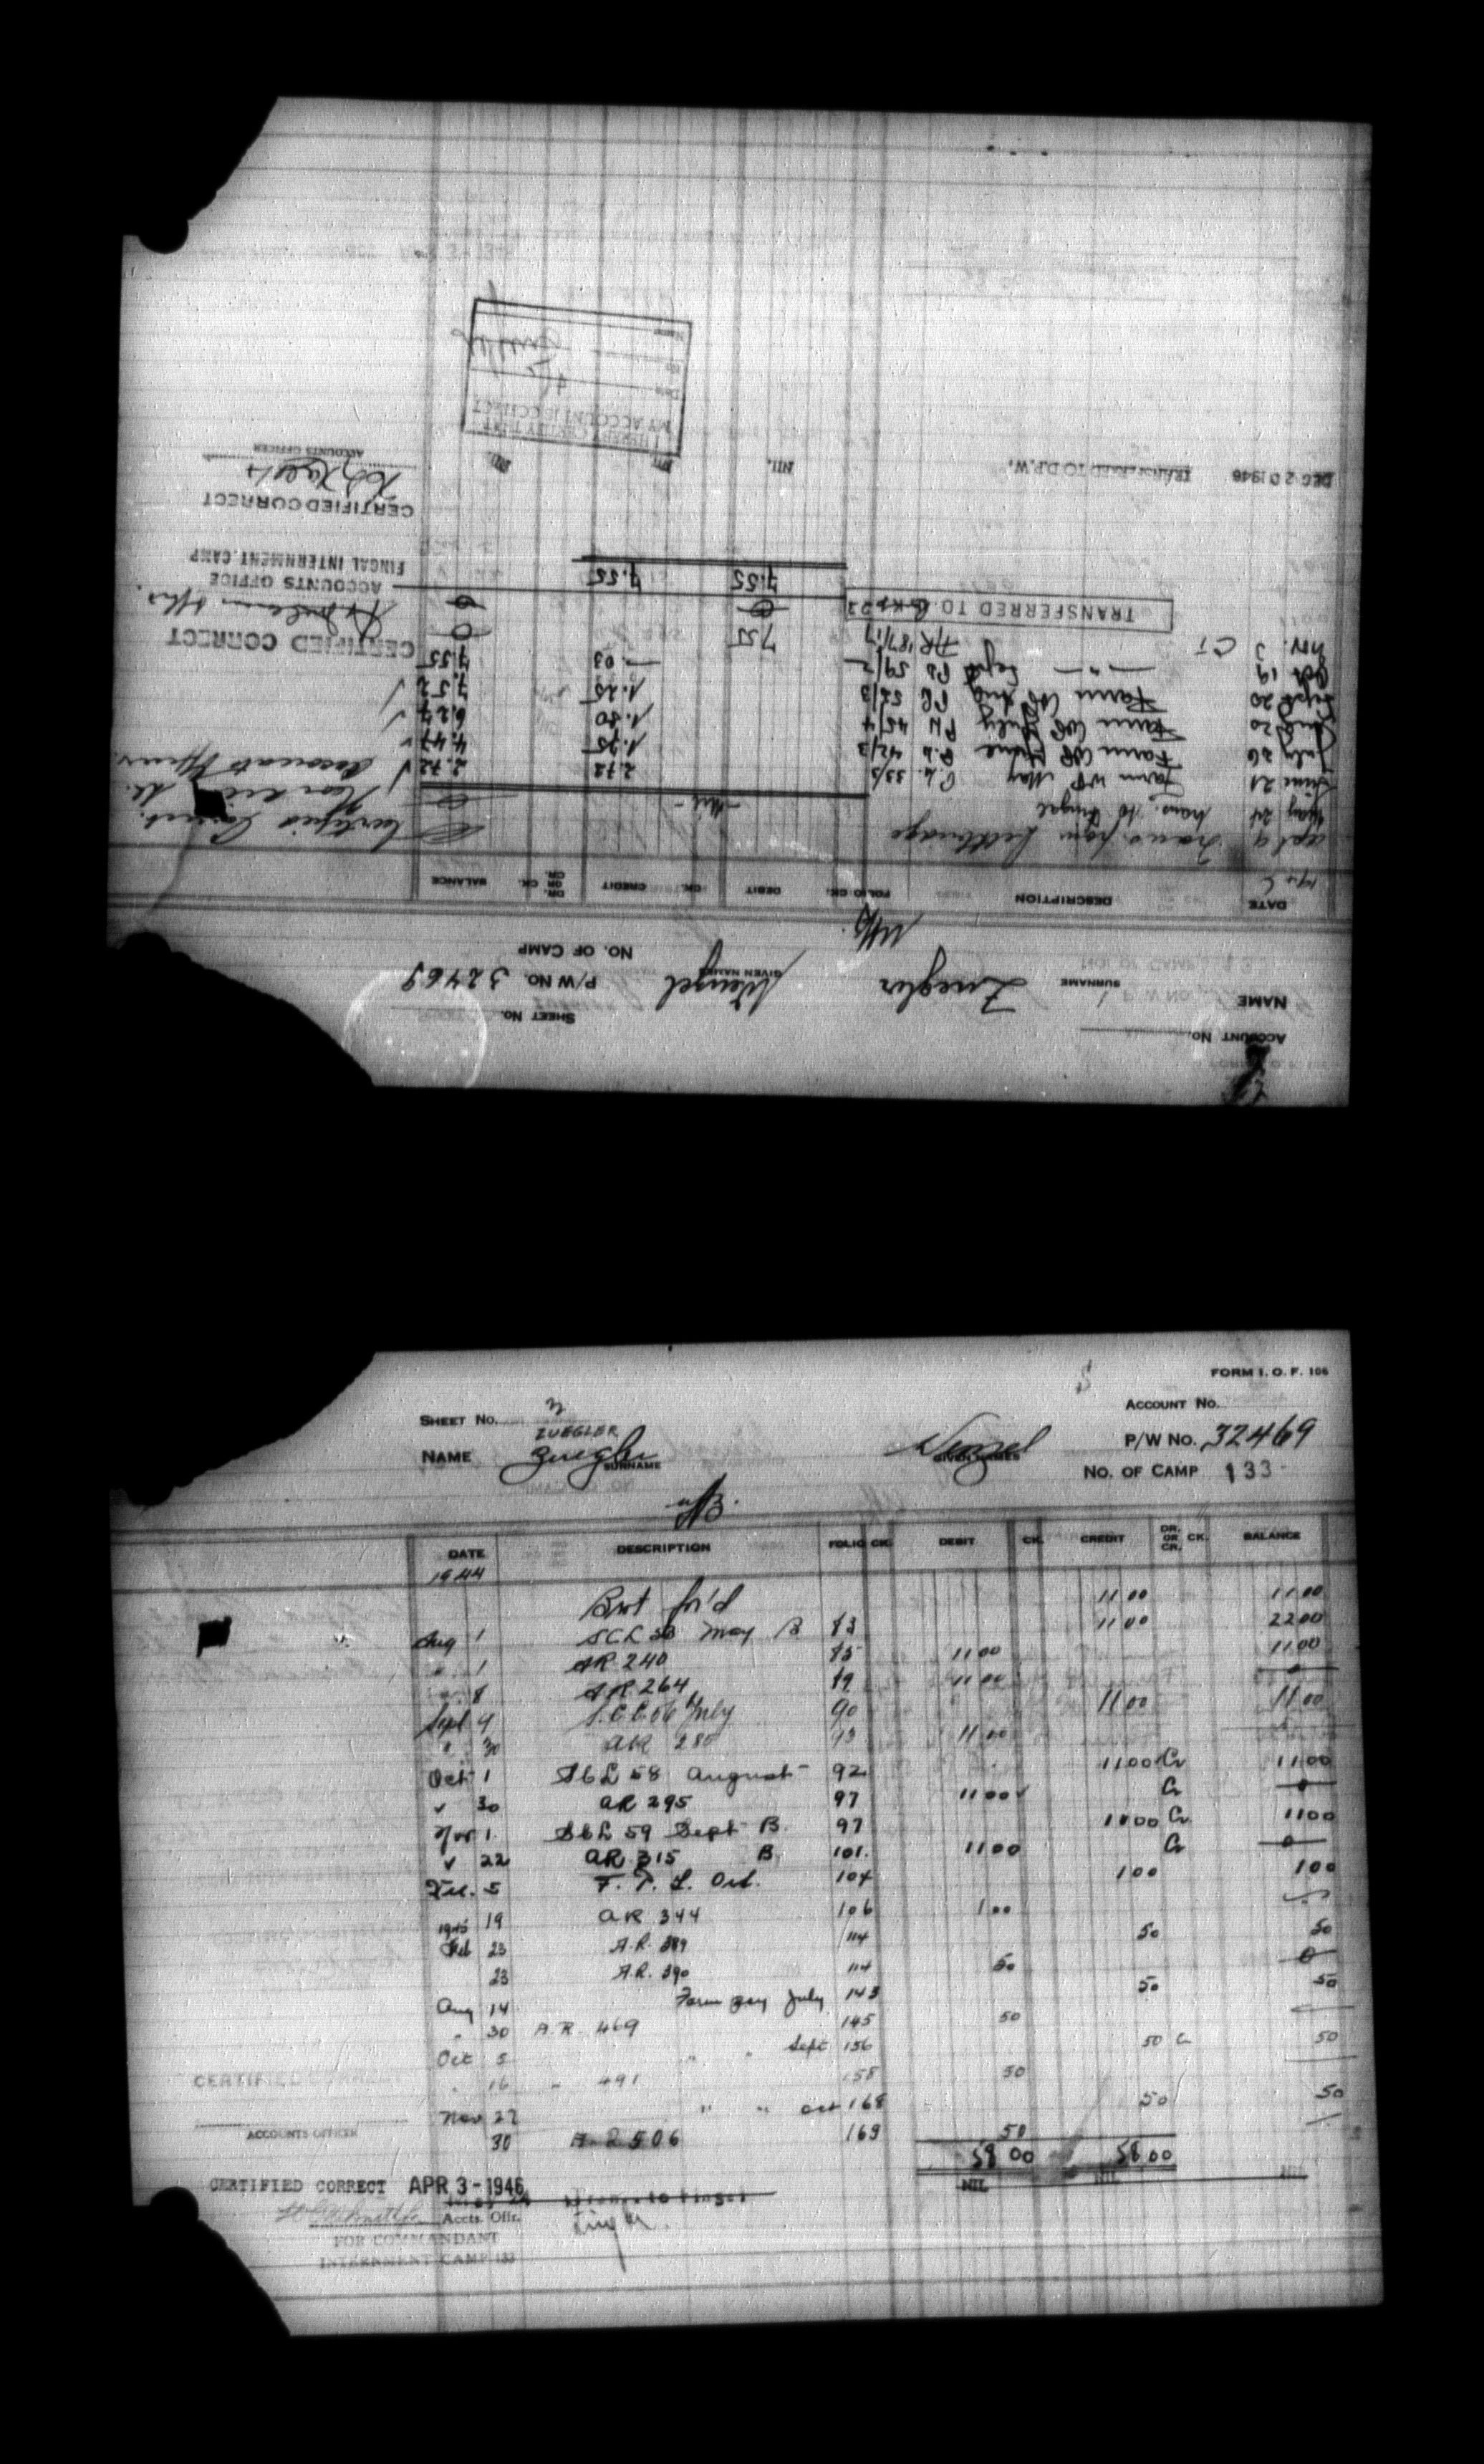 ACCOUNT No.
SHEET No.
NAME Zuegler SURNAME Wenzel GIVEN NAMES P/W No. 32469
NO. OF CAMP
DATE DESCRIPTION FOLIO CK. DEBIT CK. CREDIT DR. OR CR. CK. BALANCE
Apl 9 Trans. from Lethbridge
May 24 Trans. to Fingal - Nil -
June 21 Farm WP May 33/3 2.72 2.72
July 26 Farm WP June 42/3 1.75 4.47
Aug 20 Farm WP July 45/4 1.80 6.27
Sept 20 Farm WP Aug 52/3 1.25 7.52
Oct 19 — " — Sept 59/2 — .03 7.55
Nov. 5 AR 187/17 7.55 0
TRANSFERRED TO
7.55 7.55
CERTIFIED CORRECT
ACCOUNTS OFFICE
FINGAL INTERNMENT CAMP
CERTIFIED CORRECT
ACCOUNTS OFFICER
DEC 20 1946 TRANSFERRED TO D.P.W. NIL. NIL NIL
I HEREBY CERTIFY THAT
MY ACCOUNT IS CORRECT
Date
No.
Name
FORM I. O. F. 106
SHEET No. ACCOUNT No.
ZUEGLER
NAME Zuegler SURNAME Wenzel GIVEN NAMES P/W No. 32469
NO. OF CAMP 133
DATE DESCRIPTION FOLIO CK. DEBIT CK. CREDIT DR. OR CR. CK. BALANCE
1944
Brot for'd 11 00 11 00
Aug 1 May B 83 11 00 22 00
" 1 AR 240 85 11 00 11 00
" 8 AR 264 89 11 00 0
Sept 9 July 90 11 00 11 00
" 30 AR 280 93 11 00
Oct 1 SCL 58 August 92 11 00 Cr 11 00
✓ 30 AR 295 97 11 00 Cr 0
Nov 1 SCL 59 Sept B. 97 11 00 Cr 11 00
✓ 22 AR 315 B 101. 11 00 Cr 0
Dec. 5 F. P. L. Oct. 104 1 00 1 00
19 AR 344 106 1 00
1945
Feb 23 A.R. 389 114 50 50
23 A.R. 390 114 50 0
Aug 14 Farm pay July 143 50 50
" 30 A.R. 469 145 50
Oct 5 " " Sept 156 50 Cr 50
" 16 " 491 158 50
Nov 27 " " Oct 168 50 50
30 506 169 50
58 00 58 00
NIL NIL NIL
CERTIFIED CORRECT
ACCOUNTS OFFICER
CERTIFIED CORRECT APR 3 - 1946
Accts. Offr.
FOR COMMANDANT
INTERNMENT CAMP 133